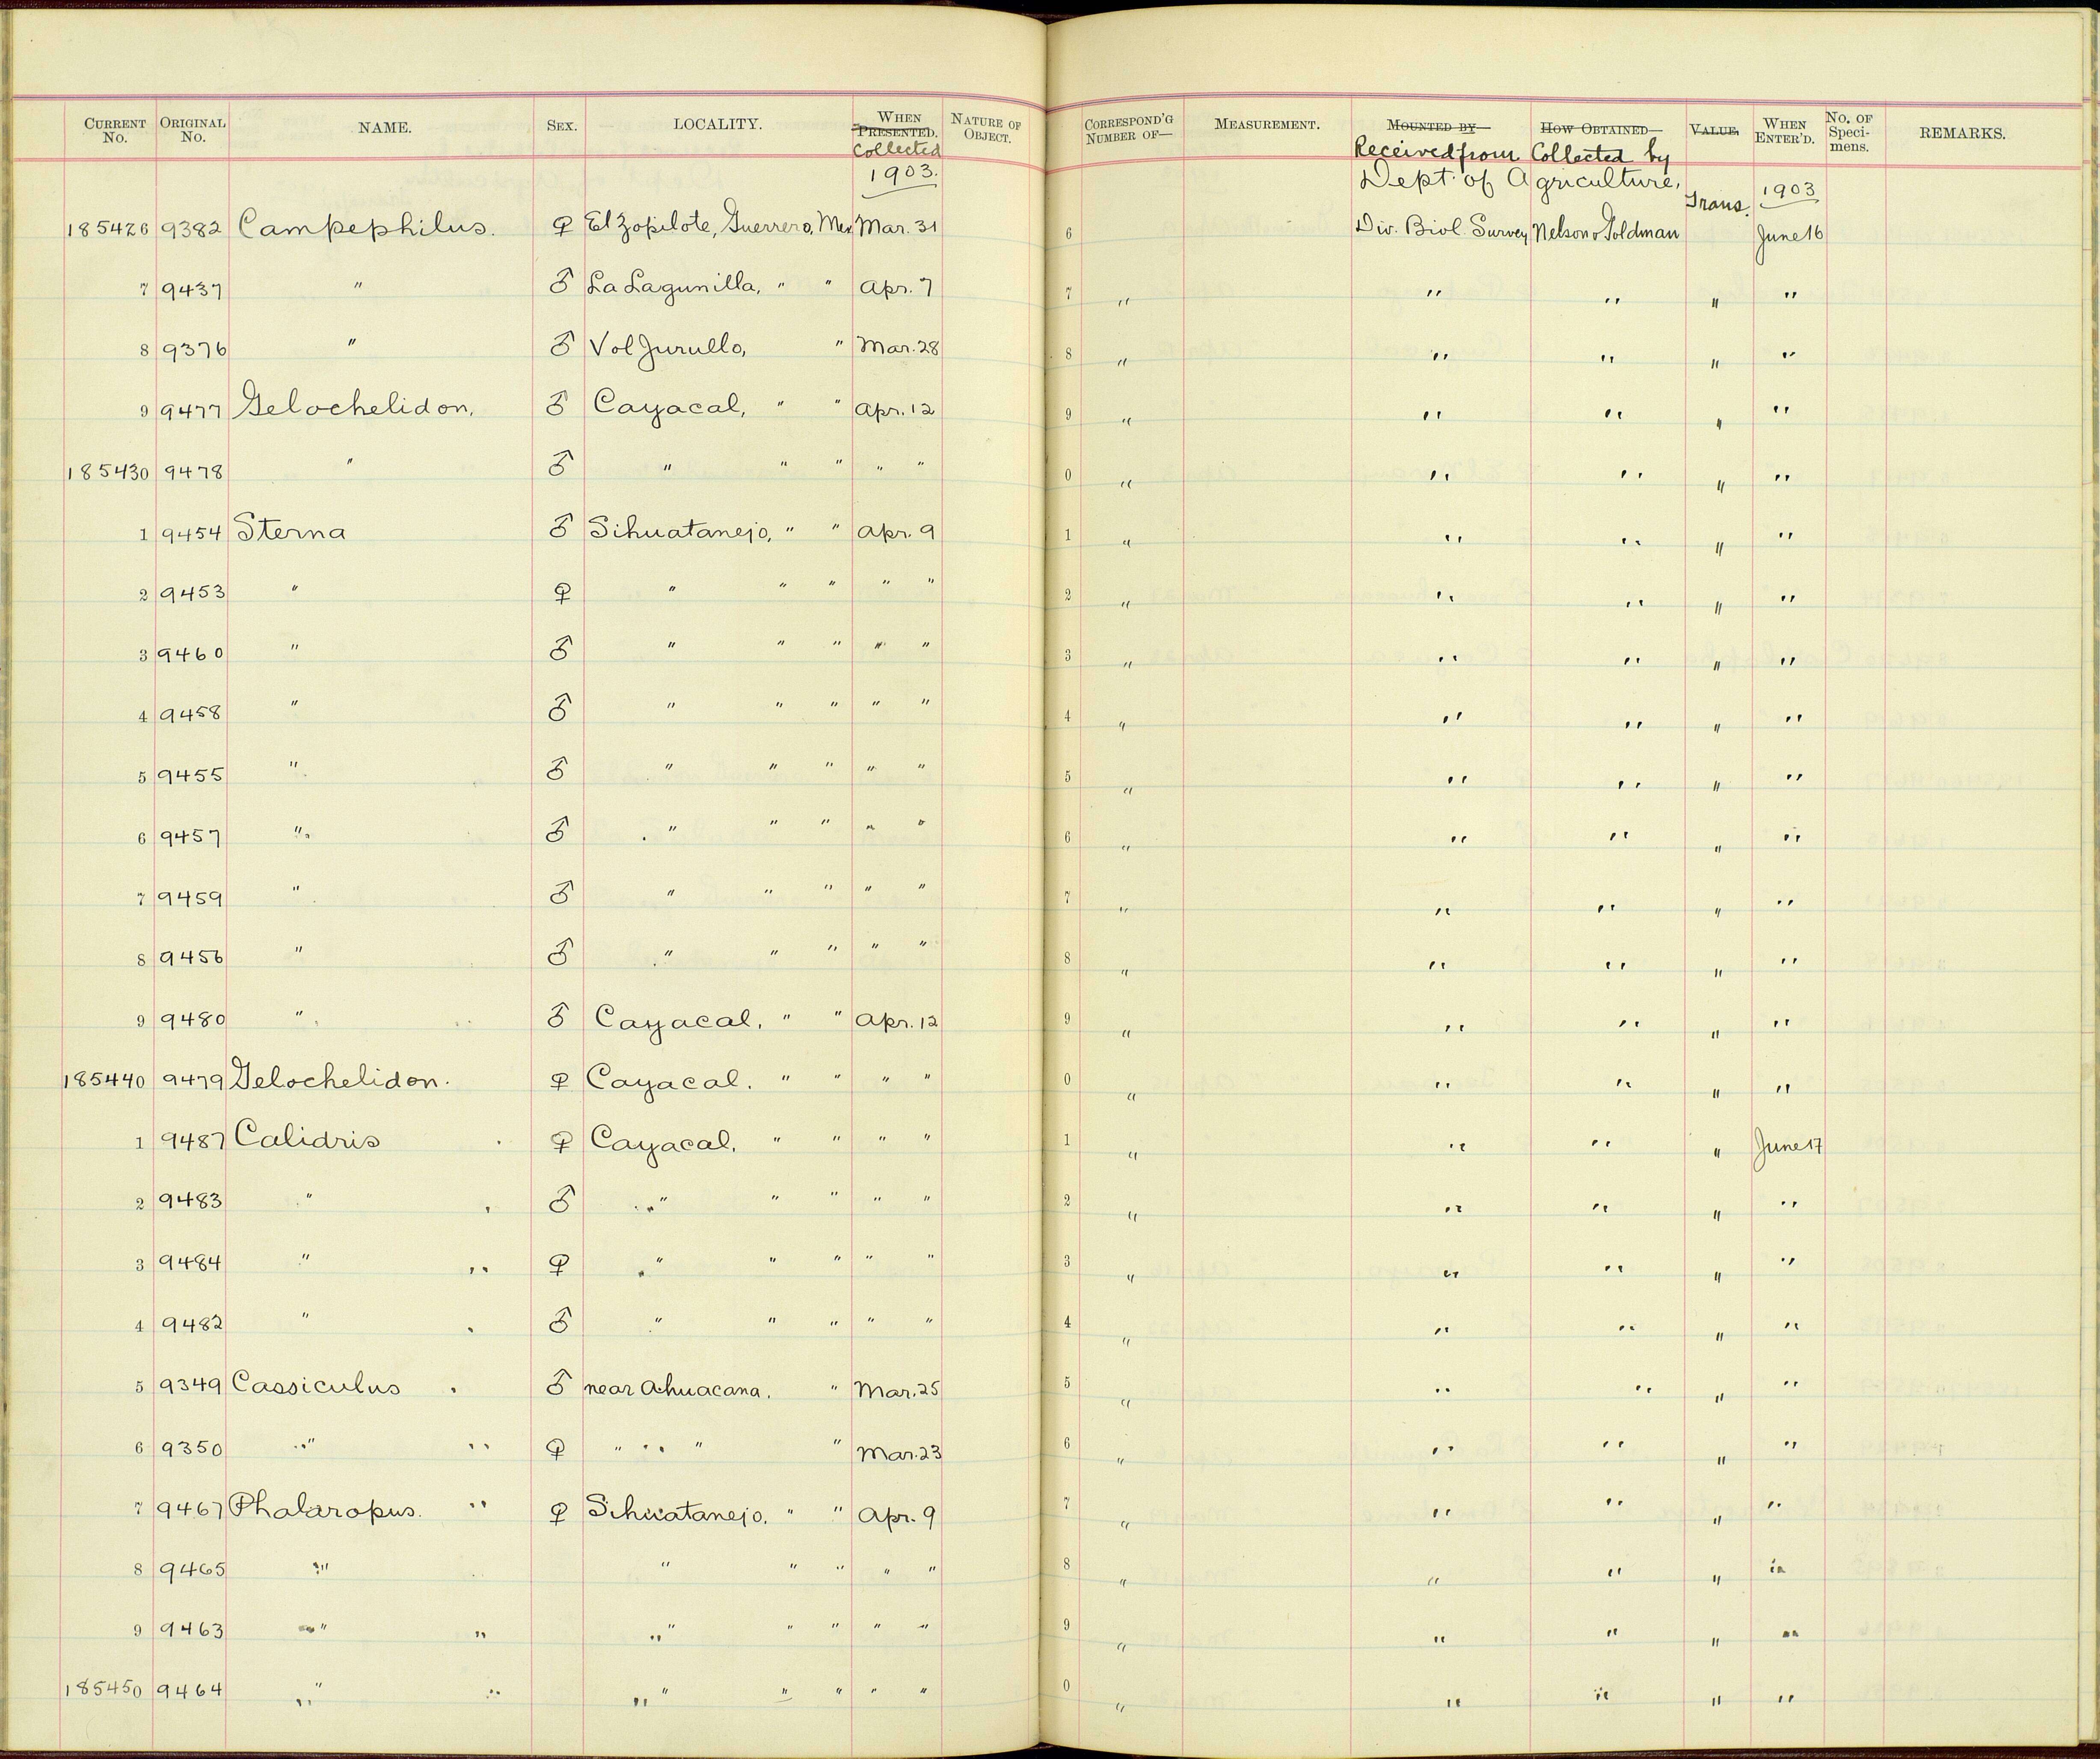 CURRENT No. ORIGINAL No. NAME. SEX. LOCALITY. WHEN PRESENTED. Collected NATURE OF OBJECT. CORRESPOND'G NUMBER OF— MEASUREMENT. MOUNTED BY— Received from HOW OBTAINED— Collected by VALUE. WHEN ENTER'D. No. OF Speci-mens. REMARKS.
1903. Dept. of Agriculture, Trans. 1903
185426 9382 Campephilus. ♀ El Zopilote, Guerrero, Mex Mar. 31 6 Div. Biol. Survey Nelson & Goldman June 16
7 9437 " ♂ La Lagunilla, " " Apr. 7 7 " " " " "
8 9376 " ♂ Vol Jurullo, " Mar. 28 8 " " " " "
9 9477 Gelochelidon. ♂ Cayacal, " " Apr. 12 9 " " " " "
185430 9478 " ♂ " " " " " 0 " " " " "
1 9454 Sterna ♂ Sihuatanejo, " " Apr. 9 1 " " " " "
2 9453 " ♀ " " " " " 2 " " " " "
3 9460 " ♂ " " " " " 3 " " " " "
4 9458 " ♂ " " " " " 4 " " " " "
5 9455 " ♂ " " " " " 5 " " " " "
6 9457 " ♂ " " " " " 6 " " " " "
7 9459 " ♂ " " " " " 7 " " " " "
8 9456 " ♂ " " " " " 8 " " " " "
9 9480 " ♂ Cayacal, " " Apr. 12 9 " " " " "
185440 9479 Gelochelidon. ♀ Cayacal. " " " " 0 " " " " "
1 9487 Calidris ♀ Cayacal, " " " " 1 " " " " June 17
2 9483 " ♂ " " " " " 2 " " " " "
3 9484 " ♀ " " " " " 3 " " " " "
4 9482 " ♂ " " " " " 4 " " " " "
5 9349 Cassiculus ♂ near Ahuacana, " Mar. 25 5 " " " " "
6 9350 " ♀ " " " Mar. 23 6 " " " " "
7 9467 Phalaropus. ♀ Sihuatanejo, " " Apr. 9 7 " " " " "
8 9465 " " " " " " 8 " " " " "
9 9463 " " " " " " 9 " " " " "
185450 9464 " " " " " " 0 " " " " "